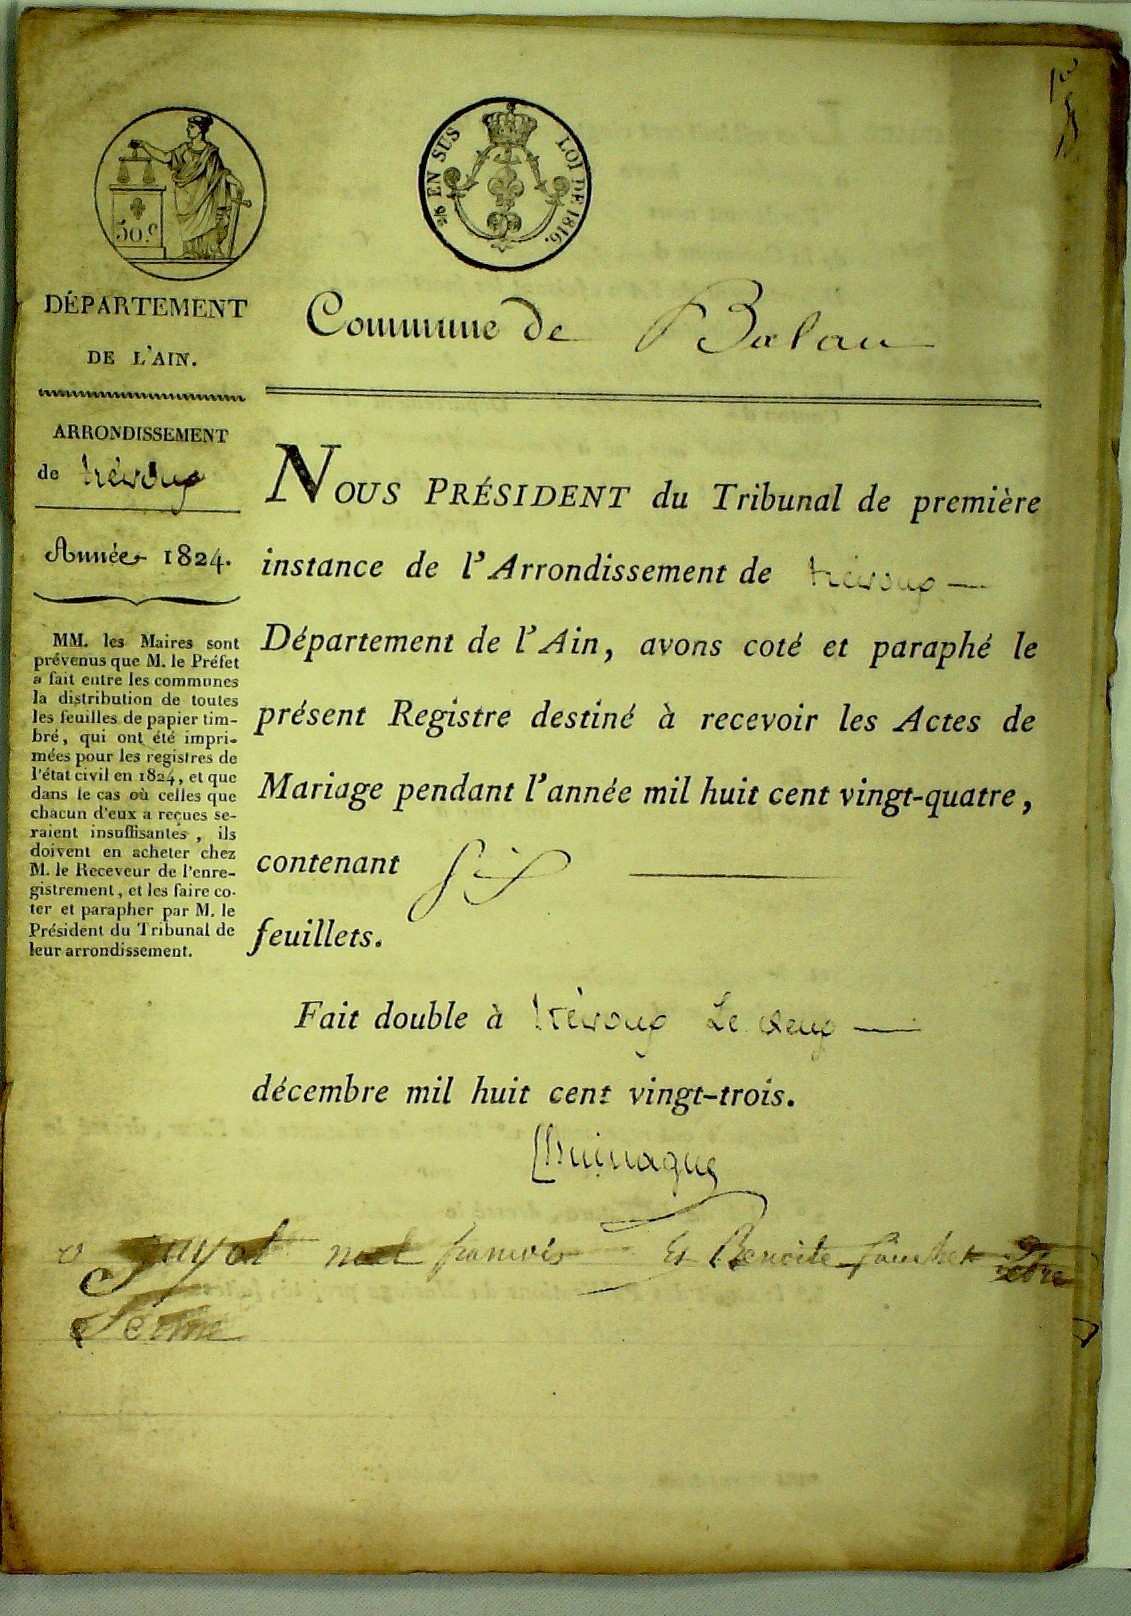 50.c
2/6 EN SUS LOI DE 1816.
DÉPARTEMENT
DE L'AIN.
Commune de Balan
ARRONDISSEMENT
de trévoux
Année 1824.
MM. les Maires sont
prévenus que M. le Préfet
a fait entre les communes
la distribution de toutes
les feuilles de papier tim-
bré, qui ont été impri-
mées pour les registres de
l'état civil en 1824, et que
dans le cas où celles que
chacun d'eux a reçues se-
raient insuffisantes, ils
doivent en acheter chez
M. le Receveur de l'enre-
gistrement, et les faire co-
ter et parapher par M. le
Président du Tribunal de
leur arrondissement.
NOUS PRÉSIDENT du Tribunal de première
instance de l'Arrondissement de trévoux
Département de l'Ain, avons coté et paraphé le
présent Registre destiné à recevoir les Actes de
Mariage pendant l'année mil huit cent vingt-quatre,
contenant Six
feuillets.
Fait double à trévoux Le deux
décembre mil huit cent vingt-trois.
guyot francois Et Benoite